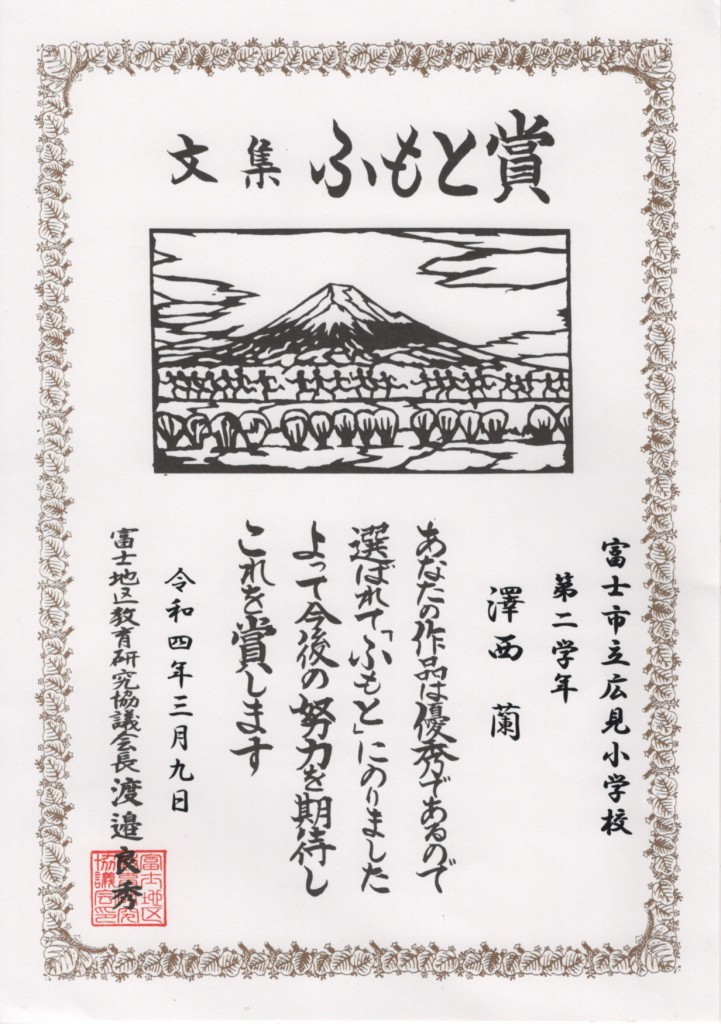 文集 ふもと賞
富士市立広見小学校
第二学年
澤西 蘭
あなたの作品は優秀であるので
選ばれて「ふもと」にのりました
よって今後の努力を期待し
これを賞します
令和四年三月九日
富士地区教育研究協議会長 渡邉良秀